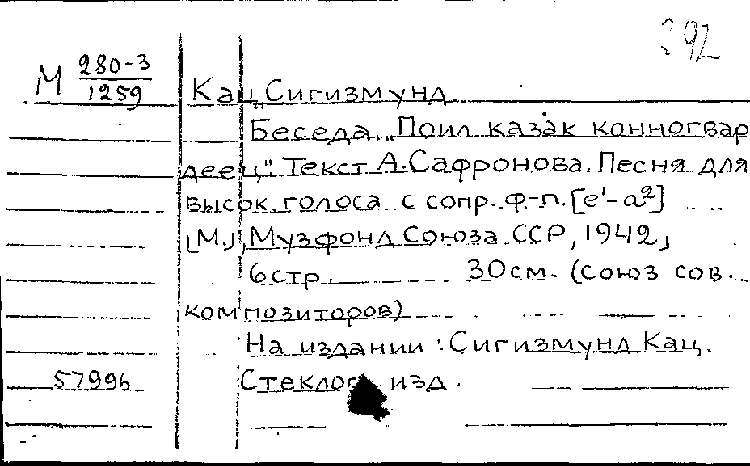 392
М 280-3
1259
Кац, Сигизмунд
Беседа. „Поил казак конногвар
деец". Текст А. Сафронова. Песня для
высок. голоса с сопр. ф-п. [e¹-a²]
[М.], Музфонд Союза ССР, 1942,
6 стр. 30 см. (Союз сов.
композиторов)
На издании: Сигизмунд Кац.
57996 Стеклог. изд.